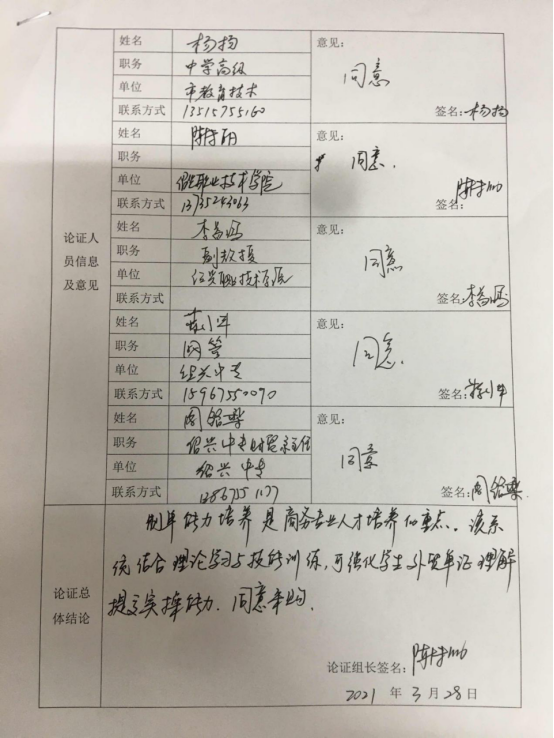 姓名 杨扬 意见：
职务 中学高级 同意
单位 市教育技术
联系方式 13515755160 签名：杨扬
姓名 意见：
职务 同意.
单位 职业技术学院
联系方式 13735243063 签名：
论证人
员信息
及意见
姓名 意见：
职务 副教授 同意
单位 绍兴职业技术学院
联系方式 签名：
姓名 意见：
职务 网管 同意.
单位 绍兴中专
联系方式 15967550070 签名：
姓名 意见：
职务 绍兴中专财贸系主任 同意
单位 绍兴中专
联系方式 签名：
论证总
体结论
制单能力培养是商务专业人才培养的重点。该系
统结合理论学习与技能训练，可强化学生外贸单证理解
提高实操能力.同意采购.
论证组长签名：
2021 年 3 月 28 日